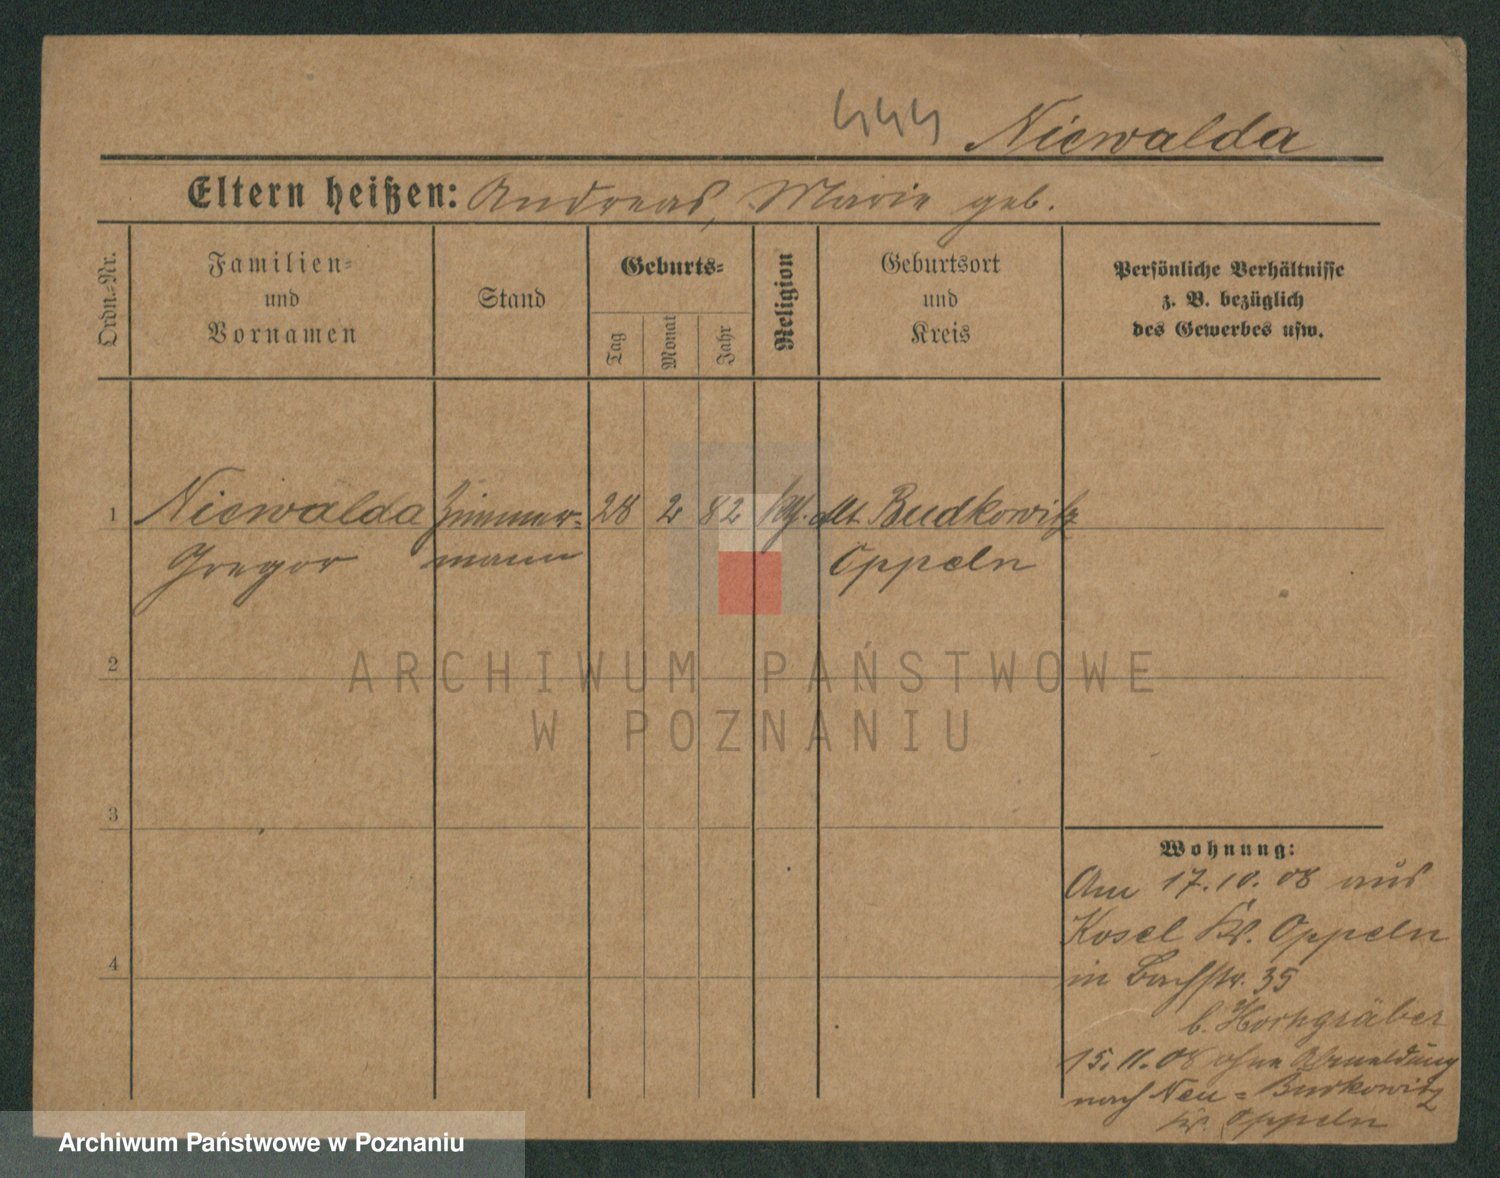 444 Niewalda
Eltern heißen: Andreas, Marie geb.
Ordn.-Nr.
Familien-
und
Vornamen
Stand
Geburts-
Tag
Monat
Jahr
Religion
Geburtsort
und
Kreis
Persönliche Verhältnisse
z. B. bezüglich
des Gewerbes usw.
1 Niewalda Zimmer- 28 2 82 kth. Alt Budkowitz
Gregor mann Oppeln
2
3
4
Wohnung:
Am 17.10.08 aus
Kosel Kr. Oppeln
in Bachstr. 35
b. Hochgräber
15.11.08 ohne Abmeldung
nach Neu-Budkowitz
Kr. Oppeln
ARCHIWUM PAŃSTWOWE
W POZNANIU
Archiwum Państwowe w Poznaniu